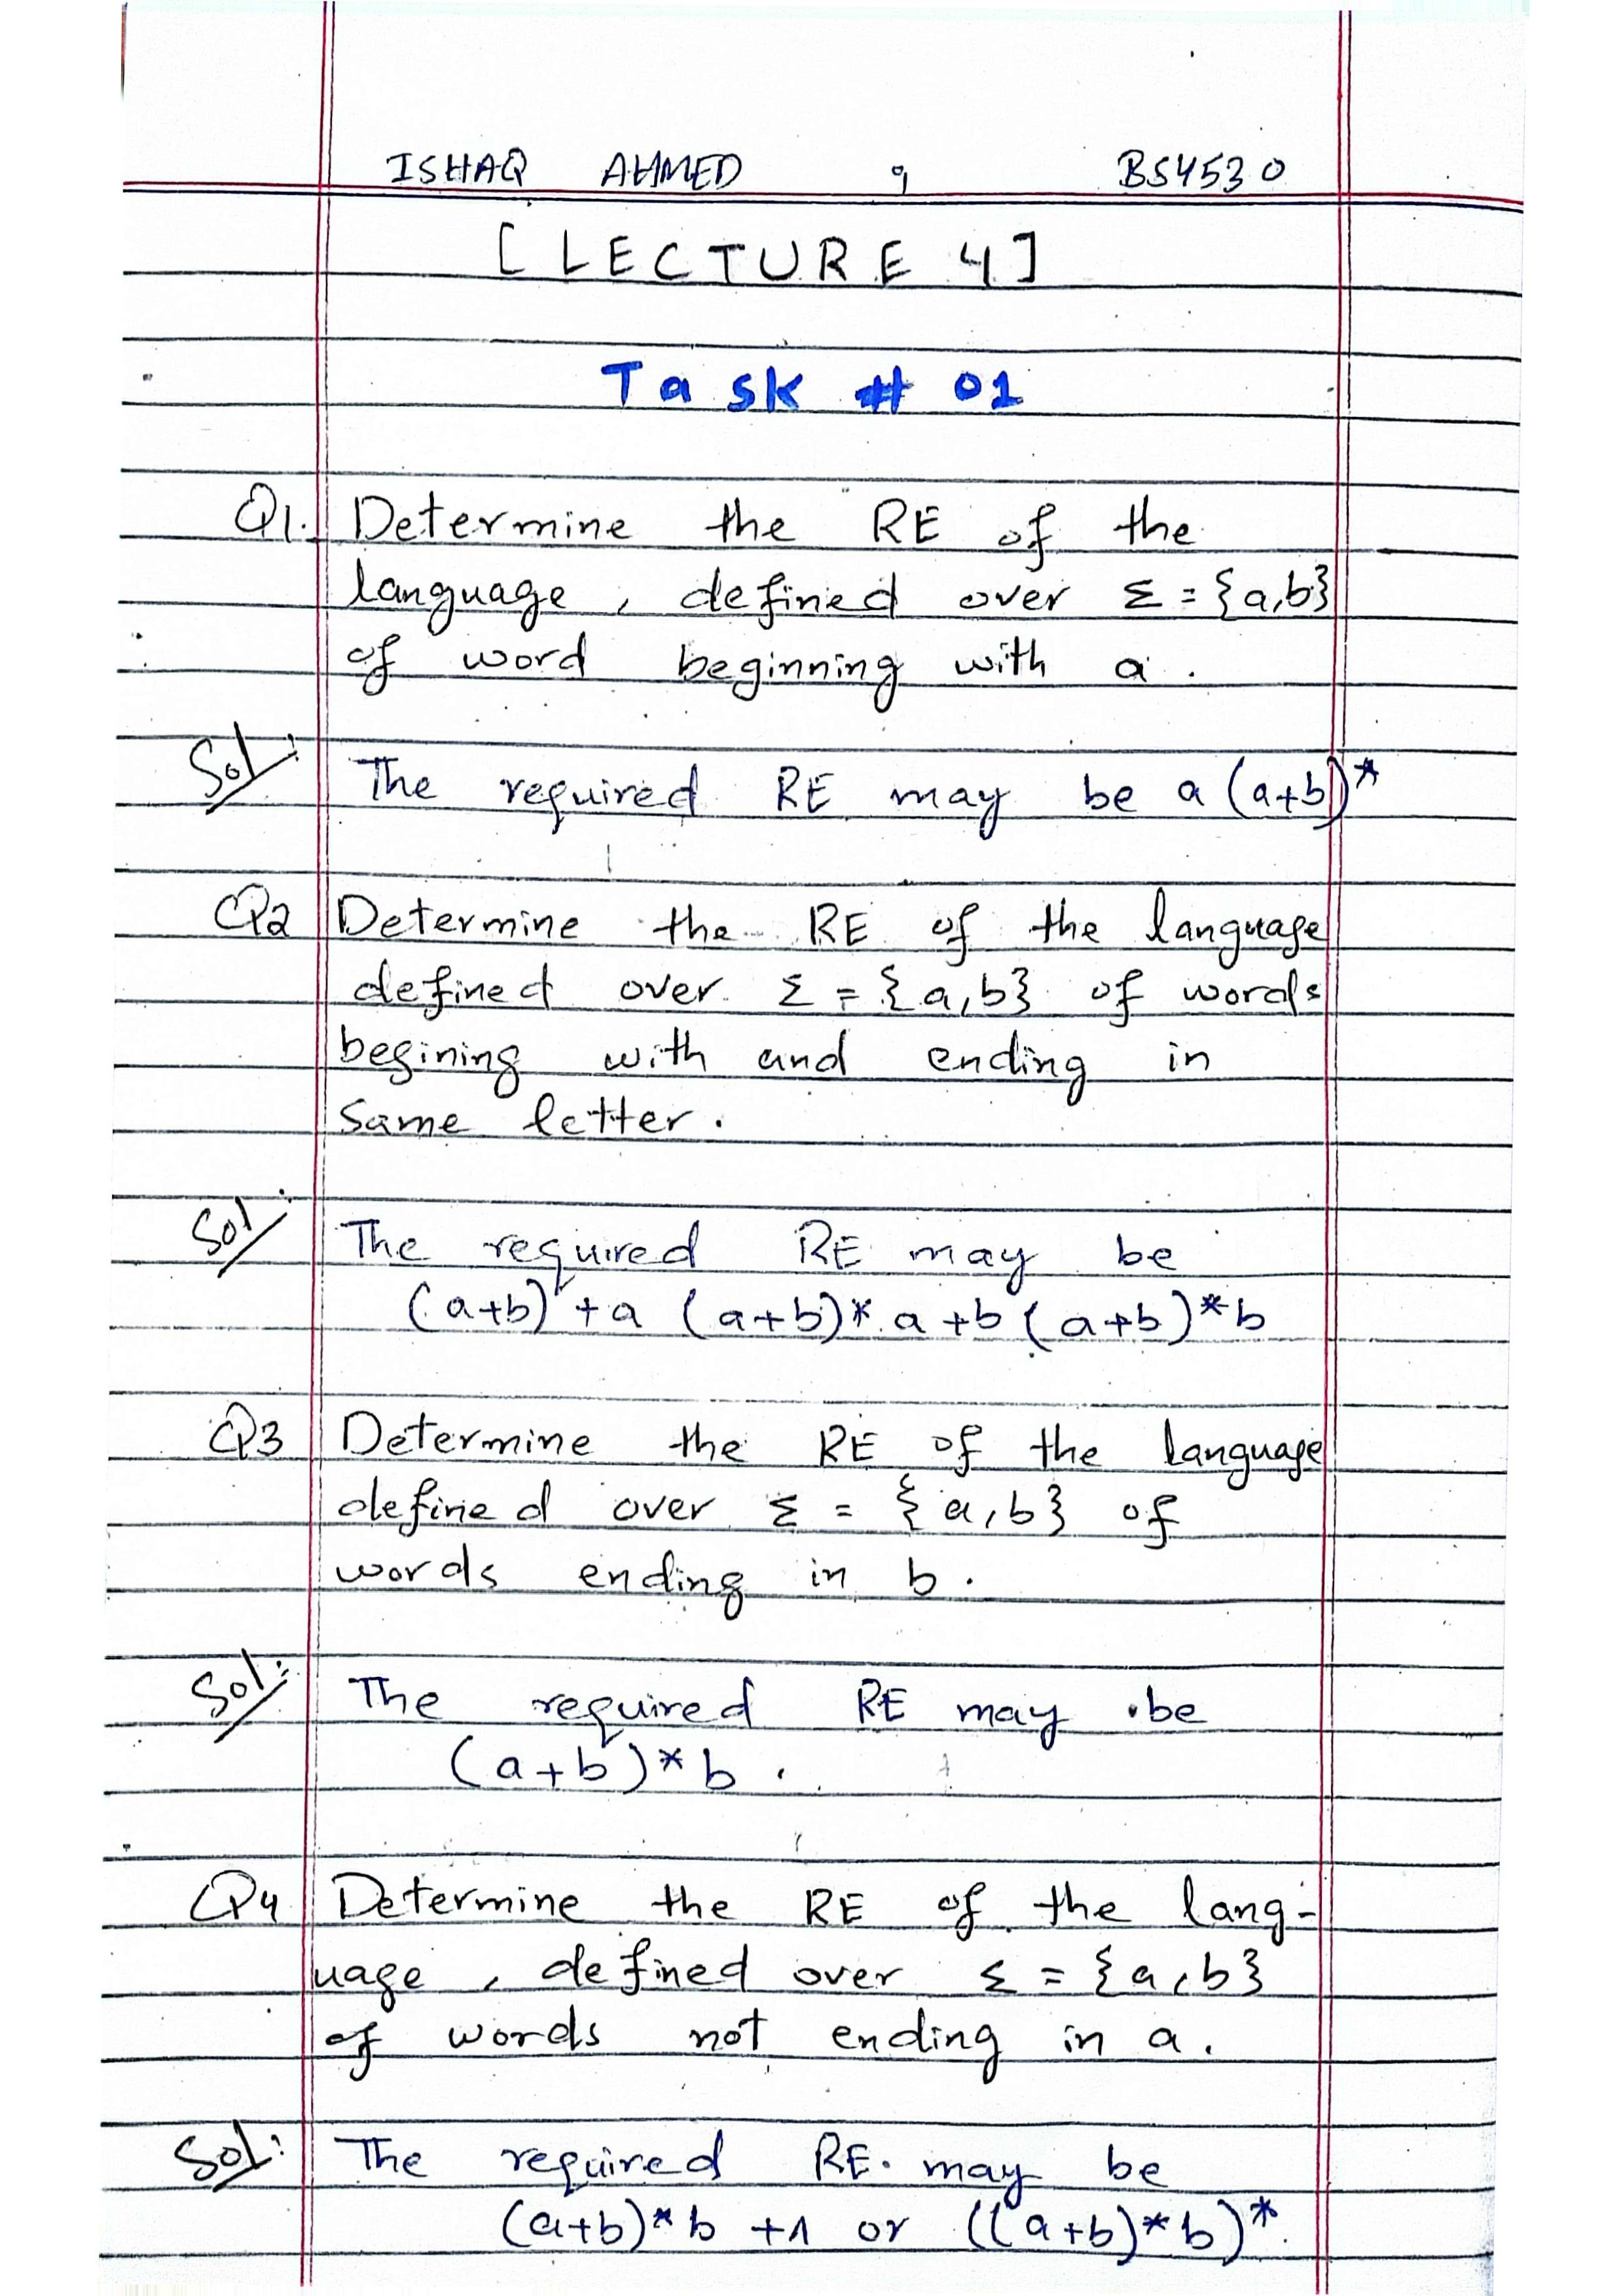 ISHAQ AHMED , BS4530
[ LECTURE 4 ]
Task # 01
Q1. Determine the RE of the
language, defined over Σ = {a,b}
of word beginning with a.
Sol: The required RE may be a (a+b)*
Q2 Determine the RE of the language
defined over Σ = {a,b} of words
begining with and ending in
same letter.
Sol: The required RE may be
(a+b) + a (a+b)* a + b (a+b)* b
Q3 Determine the RE of the language
defined over Σ = {a,b} of
words ending in b.
Sol: The required RE may be
(a+b)* b.
Q4 Determine the RE of the lang-
uage, defined over Σ = {a,b}
of words not ending in a.
Sol: The required RE may be
(a+b)* b + Λ or ((a+b)* b)*.